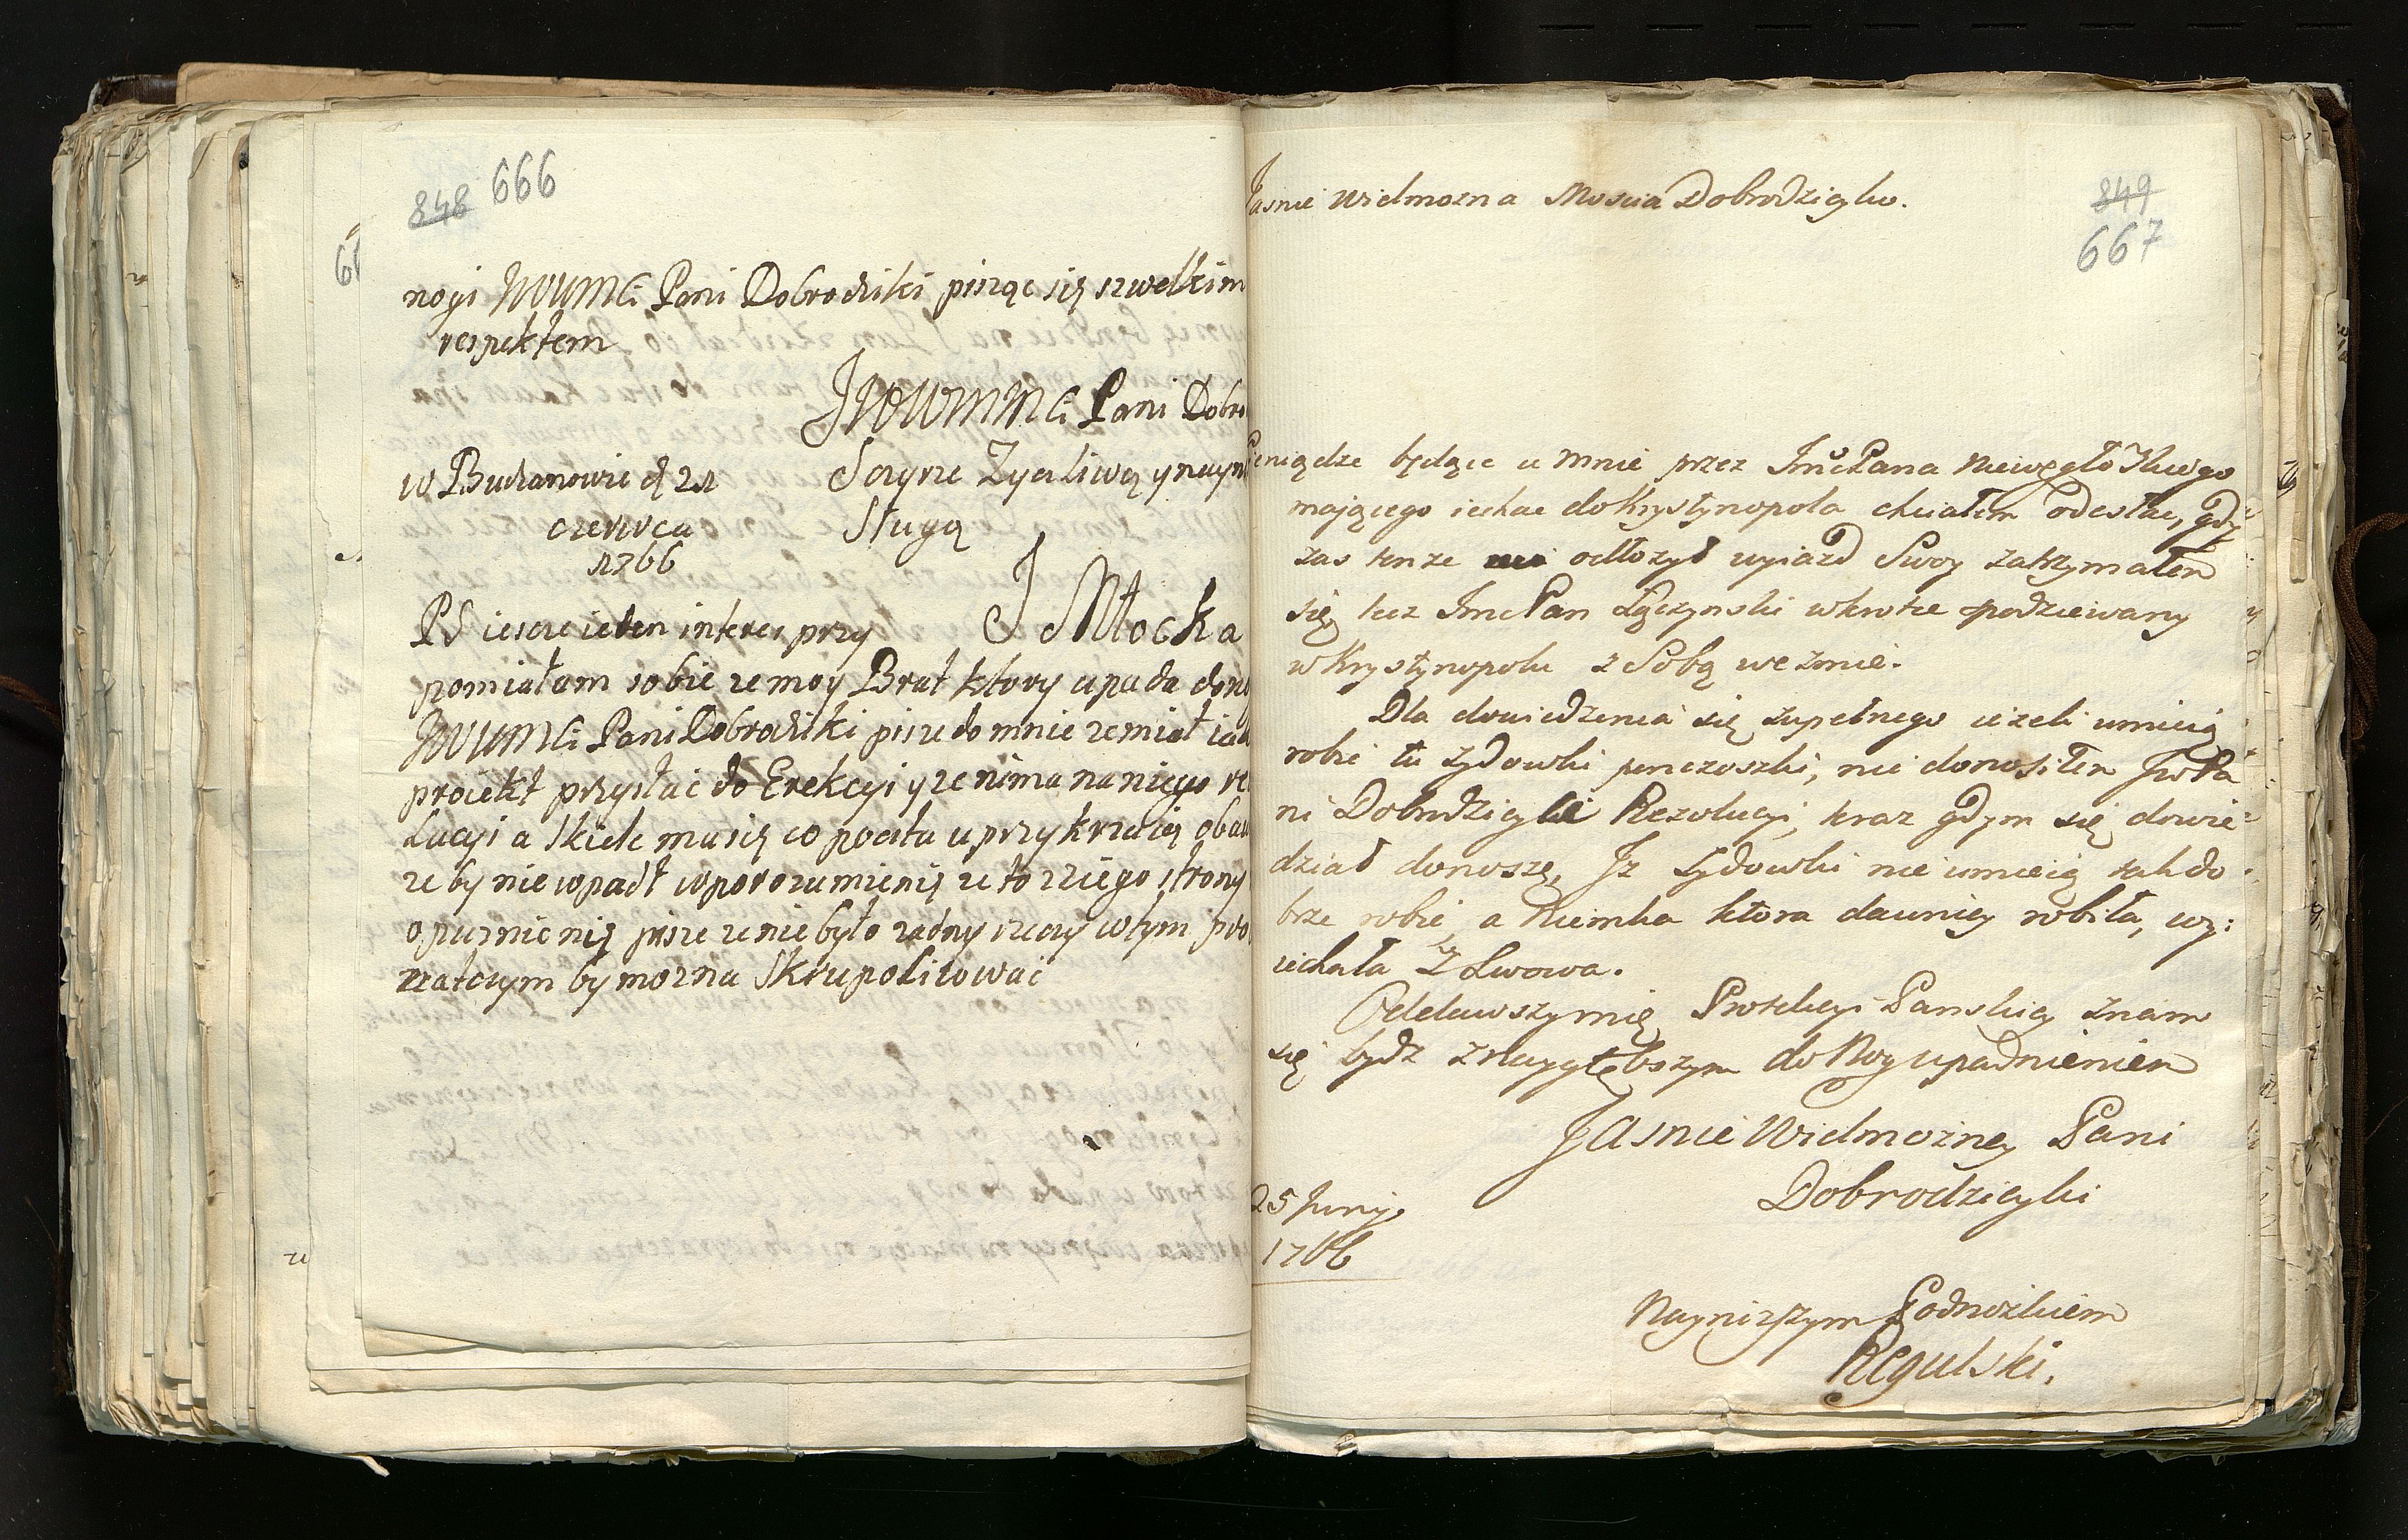 848 666
nogi JWWMCi Pani Dobrodziki pisząc się szwelkim
respektem
JWWMMCi Pani Dobro
w Buchanowie d 21
czerwca
1766
Sczyrze Zyczliwą y nayni
Sługą
J Młocka
PS iescze ieden interes przy
pomiałam sobie ze moy Brat ktory upada dono
JWWMCi Pani Dobrodziki pisze do mnie ze miał
proiekt przysłać do Erekcyi y ze nima na niego re
Lucyi a Skiele musię co poczta uprzykrzaię obaw
ze by nie wpadł w porozumienię ze to z Iego strony
opuznienię pisze ze nie było zadny rzeczy w tym pro
zatczym by mozna Skrupolitować
849
667
Jasnie Wielmozna Moscia Dobrodzieyko.
Pieniądze będące u mnie przez JmcPana Niewęgłowskiego
mającego iechac do Krystynopola chciałem odesłac, gdy
zas tenze odłozył wyiazd Swoy zatrzymałem
się, lecz JmcPan Łączynski wkrotce spodziewany
w Krystynopolu z Sobą wezmie.
Dla dowiedzenia się zupełnego iezeli umieią
robic tu Zydowki penczoszki, nie donosiłem JwPa
ni Dobrodzieyki Rezolucyi, teraz gdym się dowie-
dział donoszę, Jz Zydowki nie umieią tak do
brze robic, a Niemka ktora dawniey robiła, wy:
iechała z Lwowa.
Oddawszy mię Protekcyi Panskiey znam
się bydz z naygłębszym do Nog upadnieniem
JAsnie Wielmozney Pani
Dobrodzieyki
25 Junij
1766
Naynizszym Podnozkiem
Regulski.